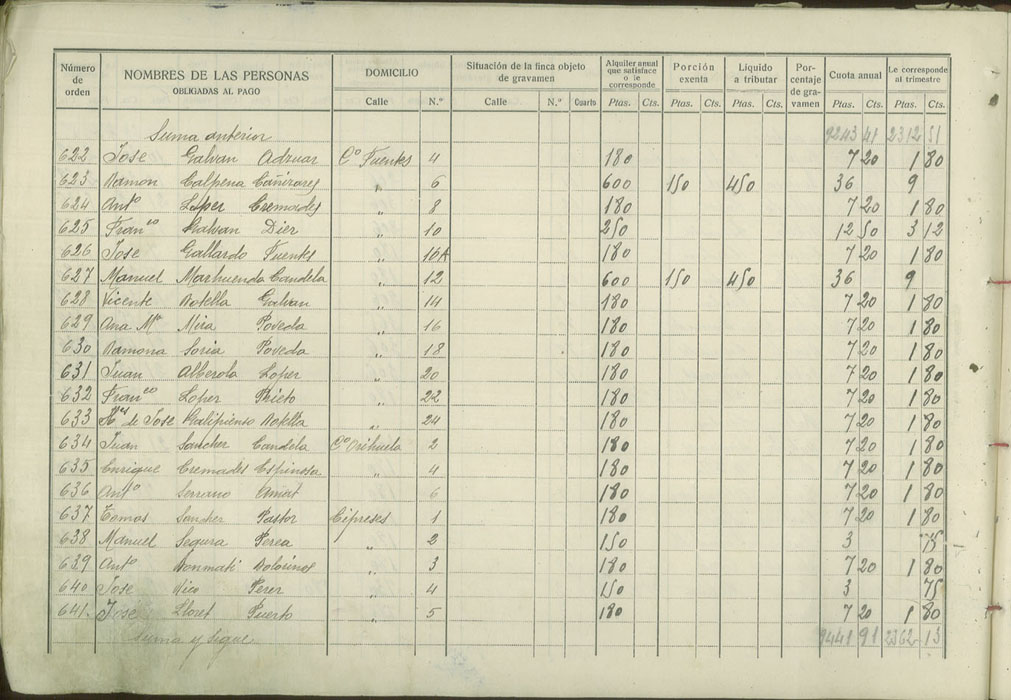 Número de orden | NOMBRES DE LAS PERSONAS OBLIGADAS AL PAGO | DOMICILIO Calle | N.º | Situación de la finca objeto de gravamen Calle | N.º | Cuarto | Alquiler anual que satisface o le corresponde Ptas. | Cts. | Porción exenta Ptas. | Cts. | Líquido a tributar Ptas. | Cts. | Por- centaje de gra- vamen | Cuota anual Ptas. | Cts. | Le corresponde al trimestre Ptas. | Cts.
Suma anterior 9243 41 2312 51
622 Jose Galvan Adzuar Cº Fuentes 4 180 7 20 1 80
623 Ramon Calpena Cañizares " 6 600 150 450 36 9
624 Antº Lopez Cremades " 8 180 7 20 1 80
625 Franco Galvan Dier " 10 250 12 50 3 12
626 Jose Gallardo Fuentes " 10A 180 7 20 1 80
627 Manuel Marhuenda Candela " 12 600 150 450 36 9
628 Vicente Botella Galvan " 14 180 7 20 1 80
629 Ana Mª Mira Poveda " 16 180 7 20 1 80
630 Ramona Soria Poveda " 18 180 7 20 1 80
631 Juan Alberola Lopez " 20 180 7 20 1 80
632 Franco Lopez Prieto " 22 180 7 20 1 80
633 de Jose Galipienso Botella " 24 180 7 20 1 80
634 Juan Sanchez Candela Cº Orihuela 2 180 7 20 1 80
635 Enrique Cremades Espinosa " 4 180 7 20 1 80
636 Antº Serrano Amat " 6 180 7 20 1 80
637 Tomas Sanchez Pastor Cipreses 1 180 7 20 1 80
638 Manuel Segura Perea " 2 150 3 75
639 Antº Bonmati " 3 180 7 20 1 80
640 Jose Rico Perez " 4 150 3 75
641 Jose Lloret Puerto " 5 180 7 20 1 80
Suma y sigue 9441 91 2362 13